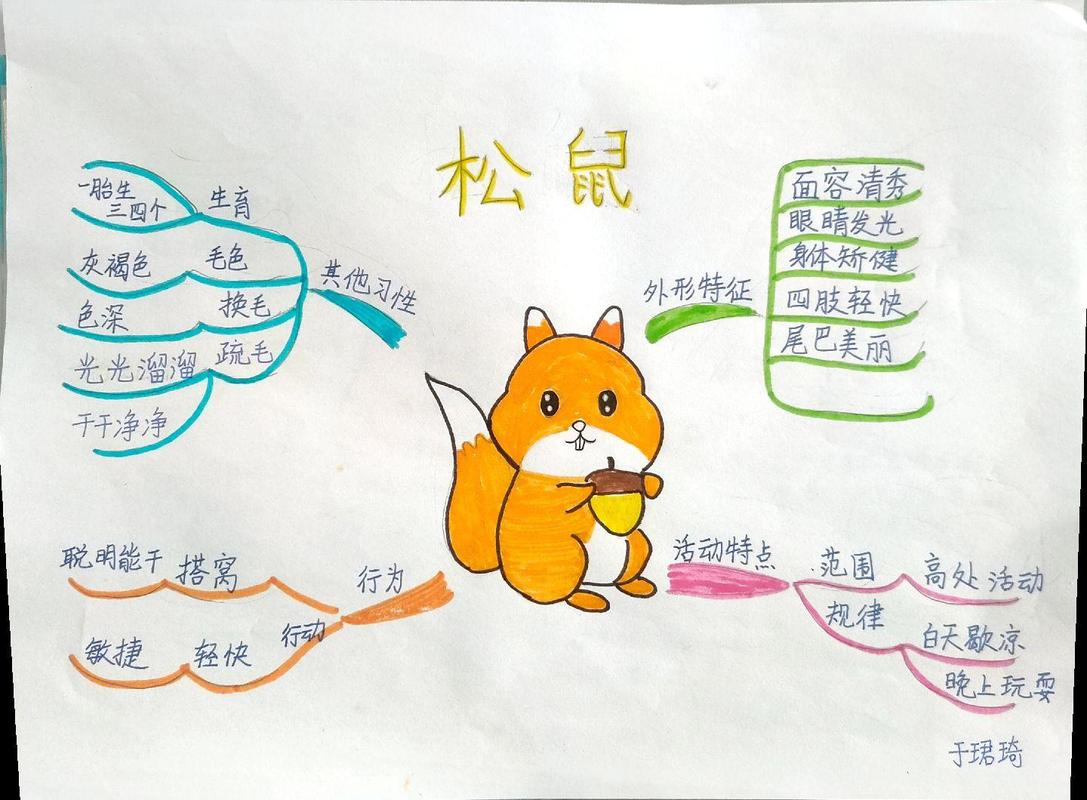 松鼠
外形特征
面容清秀
眼睛发光
身体矫健
四肢轻快
尾巴美丽
活动特点
范围
高处活动
规律
白天歇凉
晚上玩耍
行为
搭窝
聪明能干
行动
轻快
敏捷
其他习性
生育
一胎生
三四个
毛色
灰褐色
换毛
色深
疏毛
光光溜溜
干干净净
于珺琦